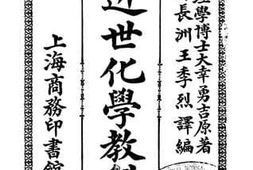 理學博士大幸勇吉原著
長洲王季烈譯編
近世化學教
上海商務印書館